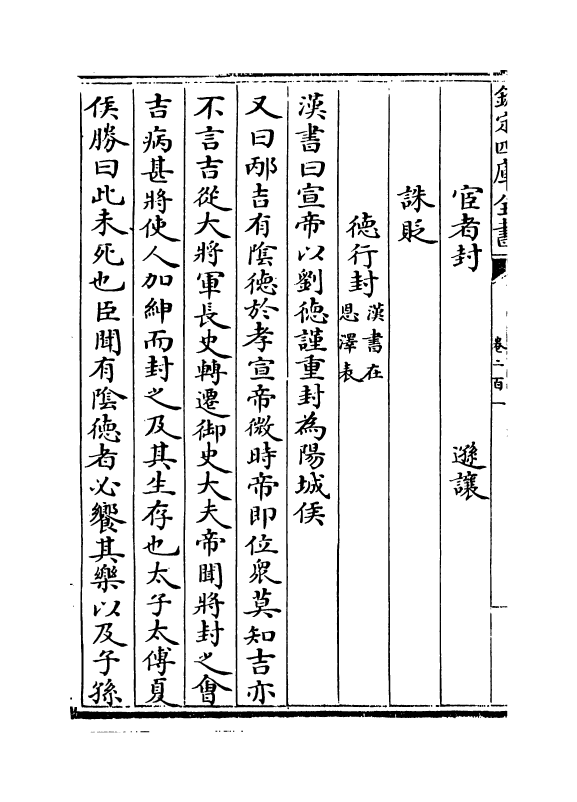 欽定四庫全書
卷二百一
宦者封 遜讓
誅貶
德行封漢書在恩澤表
漢書曰宣帝以劉德謹重封為陽城侯
又曰邴吉有陰德於孝宣帝微時帝即位衆莫知吉亦
不言吉從大將軍長史轉遷御史大夫帝聞將封之會
吉病甚將使人加紳而封之及其生存也太子太傅夏
侯勝曰此未死也臣聞有陰德者必饗其樂以及子孫